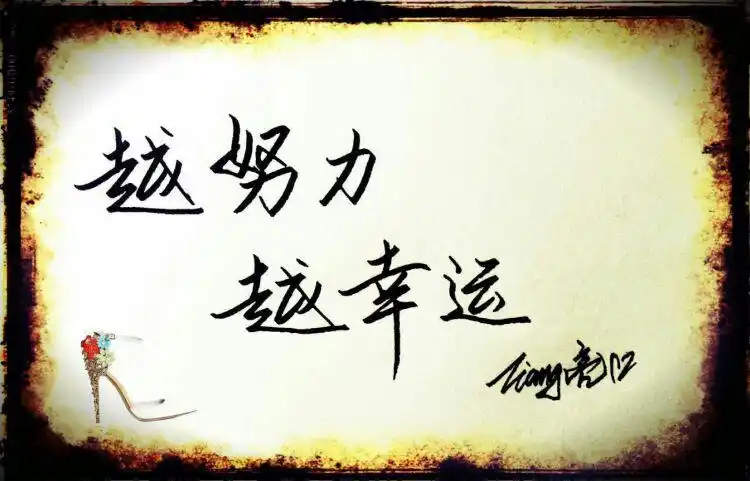 越努力
越幸运
liang亮12